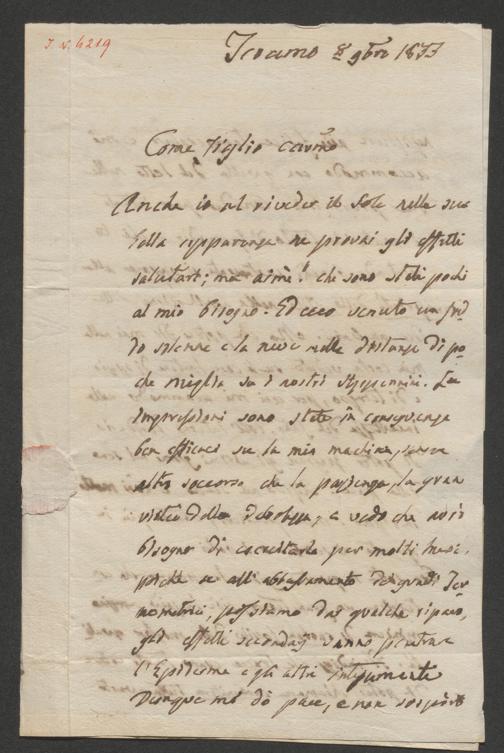 I. N. 6219
Teramo 8 9bre 1833
Come Figlio carmo
Anche io al riveder il Sole nella sua
bella apparenza ne provai gli effetti
salutari; ma aimè! che sono stati pochi
al mio bisogno. Ed ecco venuto un fred
do solenne e la neve nella distanza di po
che miglia su i nostri Appennini. Le
impressioni sono state in conseguenza
ben efficaci su la mia machina, senza
altro soccorso che la pazienza, la gran
virtù della debolezza, e vedo che avrò
bisogno di esercitarla per molti mesi,
poiché se all'abbassamento de' gradi Ter
mometrici possiamo dar qualche riparo,
gli effetti secondarj vanno
l'Epiderme e gli altri integumenti
Dunque mi dò pace, e non